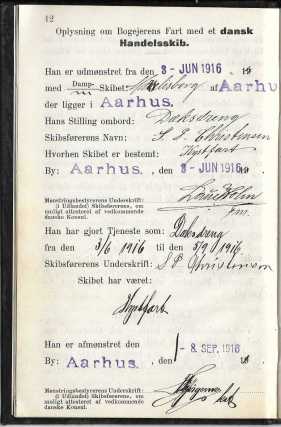 12
Oplysning om Bogejerens Fart med et dansk
Handelsskib.
Han er udmønstret fra den 3 - JUN 1916 19
med Damp- Skibet: af Aarhu
der ligger i Aarhus.
Hans Stilling ombord: Dæksdreng
Skibsførerens Navn: S. P. Christensen
Hvorhen Skibet er bestemt: Kystfart
By: Aarhus, den 3 - JUN 1916
Mønstringsbestyrerens Underskrift:
(i Udlandet) Skibsføreren, om
muligt attesteret af vedkommende
danske Konsul.
fm.
Han har gjort Tjeneste som: Dæksdreng
fra den 3/6 1916 til den 5/9 1916
Skibsførerens Underskrift: S P Christensen
Skibet har været:
Kystfart
Han er afmønstret den
By: Aarhus, den 1 - 8. SEP. 1916
Mønstringsbestyrerens Underskrift:
(i Udlandet) Skibsføreren, om
muligt attesteret af vedkommende
danske Konsul.